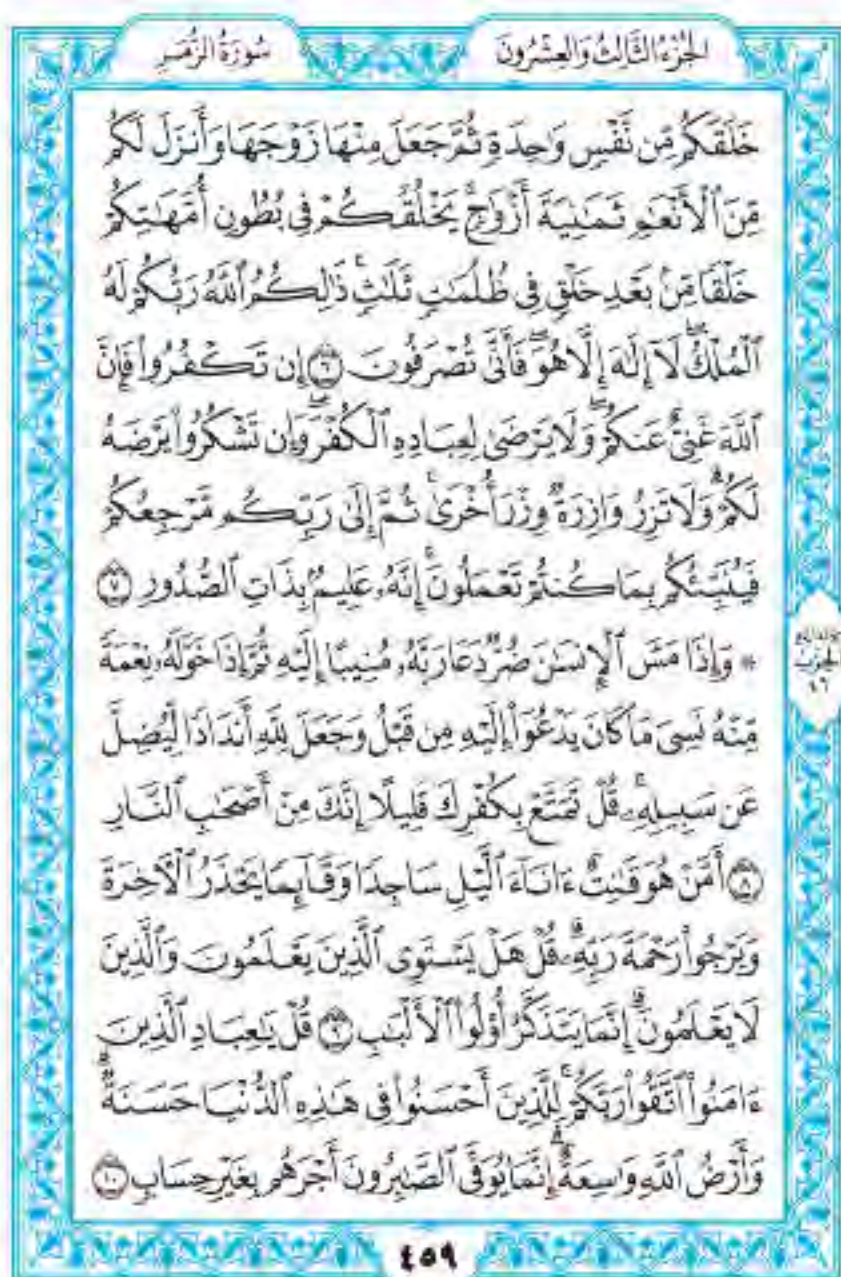 الجُزْءُ الثَّالِثُ وَالعِشْرُونَ
سُورَةُ الزُّمَرِ
خَلَقَكُم مِّن نَّفْسٍ وَٰحِدَةٍ ثُمَّ جَعَلَ مِنْهَا زَوْجَهَا وَأَنزَلَ لَكُم
مِّنَ ٱلْأَنْعَٰمِ ثَمَٰنِيَةَ أَزْوَٰجٍۚ يَخْلُقُكُمْ فِي بُطُونِ أُمَّهَٰتِكُمْ
خَلْقًا مِّنۢ بَعْدِ خَلْقٍ فِي ظُلُمَٰتٍ ثَلَٰثٍۚ ذَٰلِكُمُ ٱللَّهُ رَبُّكُمْ لَهُ
ٱلْمُلْكُۖ لَآ إِلَٰهَ إِلَّا هُوَۖ فَأَنَّىٰ تُصْرَفُونَ ٦ إِن تَكْفُرُوا۟ فَإِنَّ
ٱللَّهَ غَنِيٌّ عَنكُمْۖ وَلَا يَرْضَىٰ لِعِبَادِهِ ٱلْكُفْرَۖ وَإِن تَشْكُرُوا۟ يَرْضَهُ
لَكُمْۗ وَلَا تَزِرُ وَازِرَةٌ وِزْرَ أُخْرَىٰۚ ثُمَّ إِلَىٰ رَبِّكُم مَّرْجِعُكُمْ
فَيُنَبِّئُكُم بِمَا كُنتُمْ تَعْمَلُونَۚ إِنَّهُۥ عَلِيمٌۢ بِذَاتِ ٱلصُّدُورِ ٧
۞ وَإِذَا مَسَّ ٱلْإِنسَٰنَ ضُرٌّ دَعَا رَبَّهُۥ مُنِيبًا إِلَيْهِ ثُمَّ إِذَا خَوَّلَهُۥ نِعْمَةً
مِّنْهُ نَسِيَ مَا كَانَ يَدْعُوٓا۟ إِلَيْهِ مِن قَبْلُ وَجَعَلَ لِلَّهِ أَندَادًا لِّيُضِلَّ
عَن سَبِيلِهِۦۚ قُلْ تَمَتَّعْ بِكُفْرِكَ قَلِيلًا إِنَّكَ مِنْ أَصْحَٰبِ ٱلنَّارِ
٨ أَمَّنْ هُوَ قَٰنِتٌ ءَانَآءَ ٱلَّيْلِ سَاجِدًا وَقَآئِمًا يَحْذَرُ ٱلْأٓخِرَةَ
وَيَرْجُوا۟ رَحْمَةَ رَبِّهِۦۗ قُلْ هَلْ يَسْتَوِي ٱلَّذِينَ يَعْلَمُونَ وَٱلَّذِينَ
لَا يَعْلَمُونَۗ إِنَّمَا يَتَذَكَّرُ أُو۟لُوا۟ ٱلْأَلْبَٰبِ ٩ قُلْ يَٰعِبَادِ ٱلَّذِينَ
ءَامَنُوا۟ ٱتَّقُوا۟ رَبَّكُمْۚ لِلَّذِينَ أَحْسَنُوا۟ فِي هَٰذِهِ ٱلدُّنْيَا حَسَنَةٌۗ
وَأَرْضُ ٱللَّهِ وَٰسِعَةٌۗ إِنَّمَا يُوَفَّى ٱلصَّٰبِرُونَ أَجْرَهُم بِغَيْرِ حِسَابٍ ١٠
الحِزْب
٤٦
٤٥٩